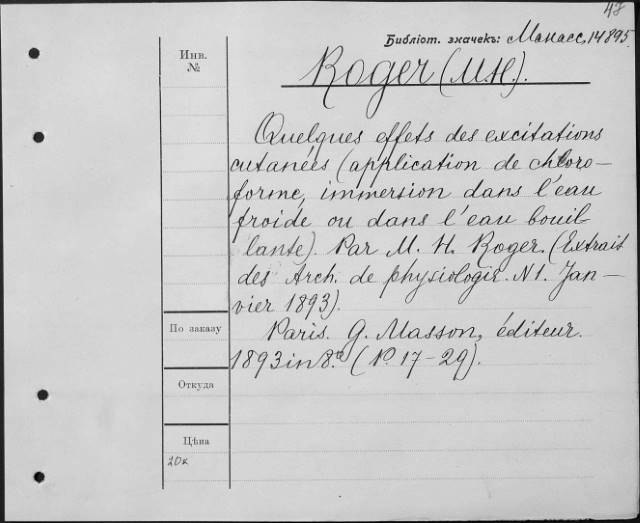 47
Библіот. значекъ: Манасс, 14895
Инв.
№
Roger (M.H.).
Quelques effets des excitations
cutanées (application de chloro-
forme, immersion dans l'eau
froide ou dans l'eau bouil-
lante). Par M. H. Roger. (Extrait
des Arch. de physiologie. N1. Jan-
vier 1893).
По заказу
Paris. G. Masson, éditeur.
1893 in 8.º (P. 17-29).
Откуда
Цѣна
20к